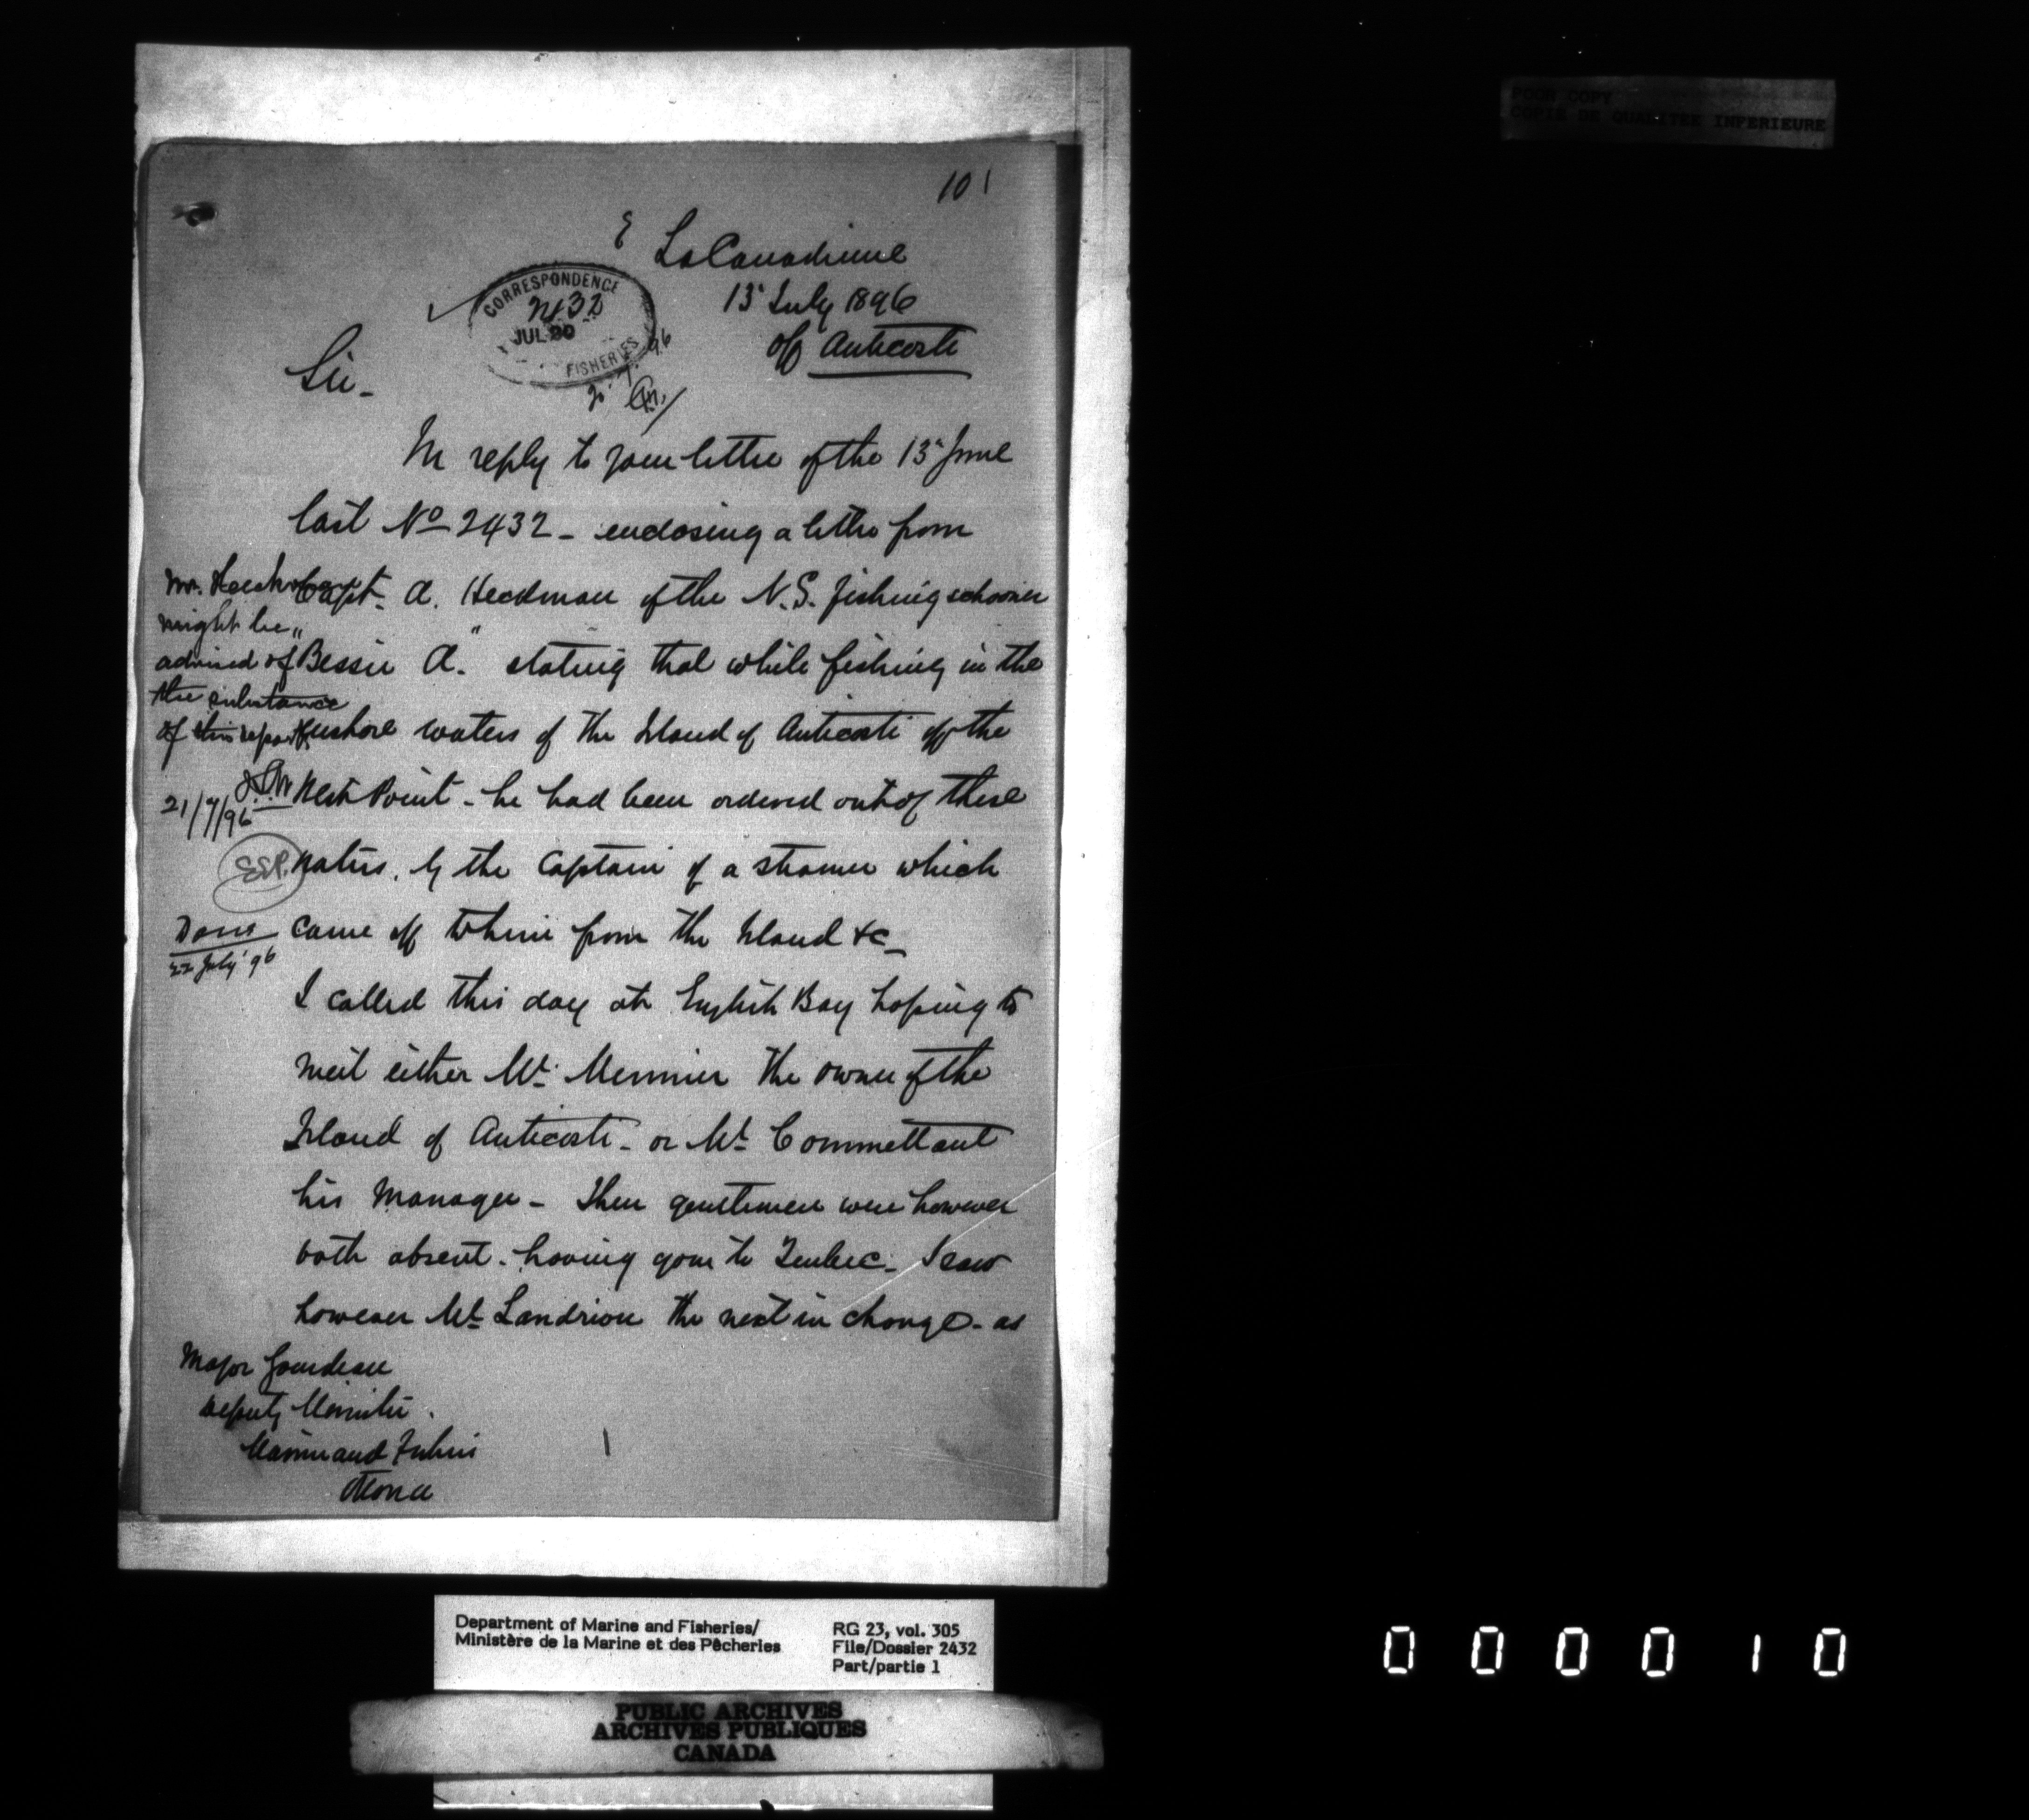 POOR COPY
COPIE DE QUALITEE INFERIEURE
101
La Canadienne
13 July 1896
off Anticosti
CORRESPONDENCE
2432
JUL 20
FISHERIES
Sir -
In reply to your letter of the 13th June
last No 2432 - enclosing a letter from
Capt. A. Heckman of the N.S. fishing schooner
"Bessie A." stating that while fishing in the
inshore waters of the Island of Anticosti off the
West Point - he had been ordered out of these
waters, by the Captain of a steamer which
came off to him from the Island &c -
I called this day at English Bay hoping to
meet either Mr. Mennier the owner of the
Island of Anticosti - or Mr Commettant
his Manager - These gentlemen were however
both absent - having gone to Quebec - I saw
however Mr Landrieu the next in charge - as
Mr. Heckman
might be
advised of
the substance
of this report
21/7/96
Done
22 July '96
Major Gourdeau
Deputy Minister
Marine and Fisheries
Ottawa
1
Department of Marine and Fisheries/
Ministère de la Marine et des Pêcheries
RG 23, vol. 305
File/Dossier 2432
Part/partie 1
PUBLIC ARCHIVES
ARCHIVES PUBLIQUES
CANADA
000010